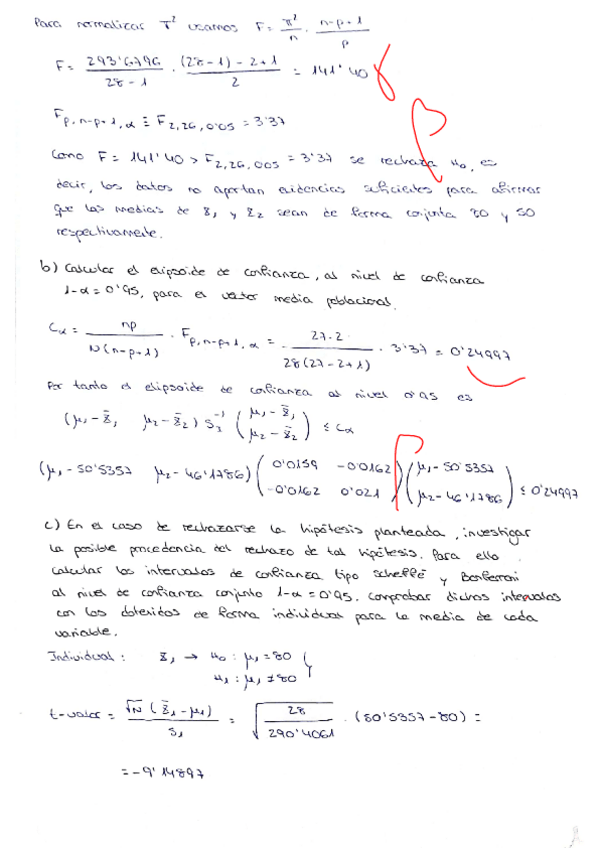 Para normalizar T² usamos F = T²/n · (n-p+1)/p
F = 293'6796/(28-1) · ((28-1)-2+1)/2 = 141'40
F p,n-p+1,α ≡ F 2,26,0'05 = 3'37
Como F = 141'40 > F 2,26,0'05 = 3'37 se rechaza H₀, es
decir, los datos no aportan evidencias suficientes para afirmar
que las medias de Z₁ y Z₂ sean de forma conjunta 80 y 50
respectivamente.
b) Calcular el elipsoide de confianza, al nivel de confianza
1-α = 0'95, para el vector media poblacional.
Cα = np/(N(n-p+1)) · F p,n-p+1,α = 27·2/(28(27-2+1)) · 3'37 = 0'24997
Por tanto el elipsoide de confianza al nivel 0'95 es
(μ₁ - z̄₁, μ₂ - z̄₂) S⁻¹ (μ₁ - z̄₁ μ₂ - z̄₂) ≤ Cα
(μ₁ - 50'5357 μ₂ - 46'1786) (0'0159 -0'0162 -0'0162 0'021) (μ₁ - 50'5357 μ₂ - 46'1786) ≤ 0'24997
c) En el caso de rechazarse la hipótesis planteada, investigar
la posible procedencia del rechazo de tal hipótesis. Para ello
calcular los intervalos de confianza tipo Scheffé y Bonferroni
al nivel de confianza conjunto 1-α = 0'95. Comprobar dichos intervalos
con los obtenidos de forma individual para la media de cada
variable.
Individual: Z₁ → H₀: μ₁ = 80
H₁: μ₁ ≠ 80
t-valor = √N (z̄₁ - μ₁)/S₁ = √(28/290'4061) · (50'5357 - 80) =
= -9'14897